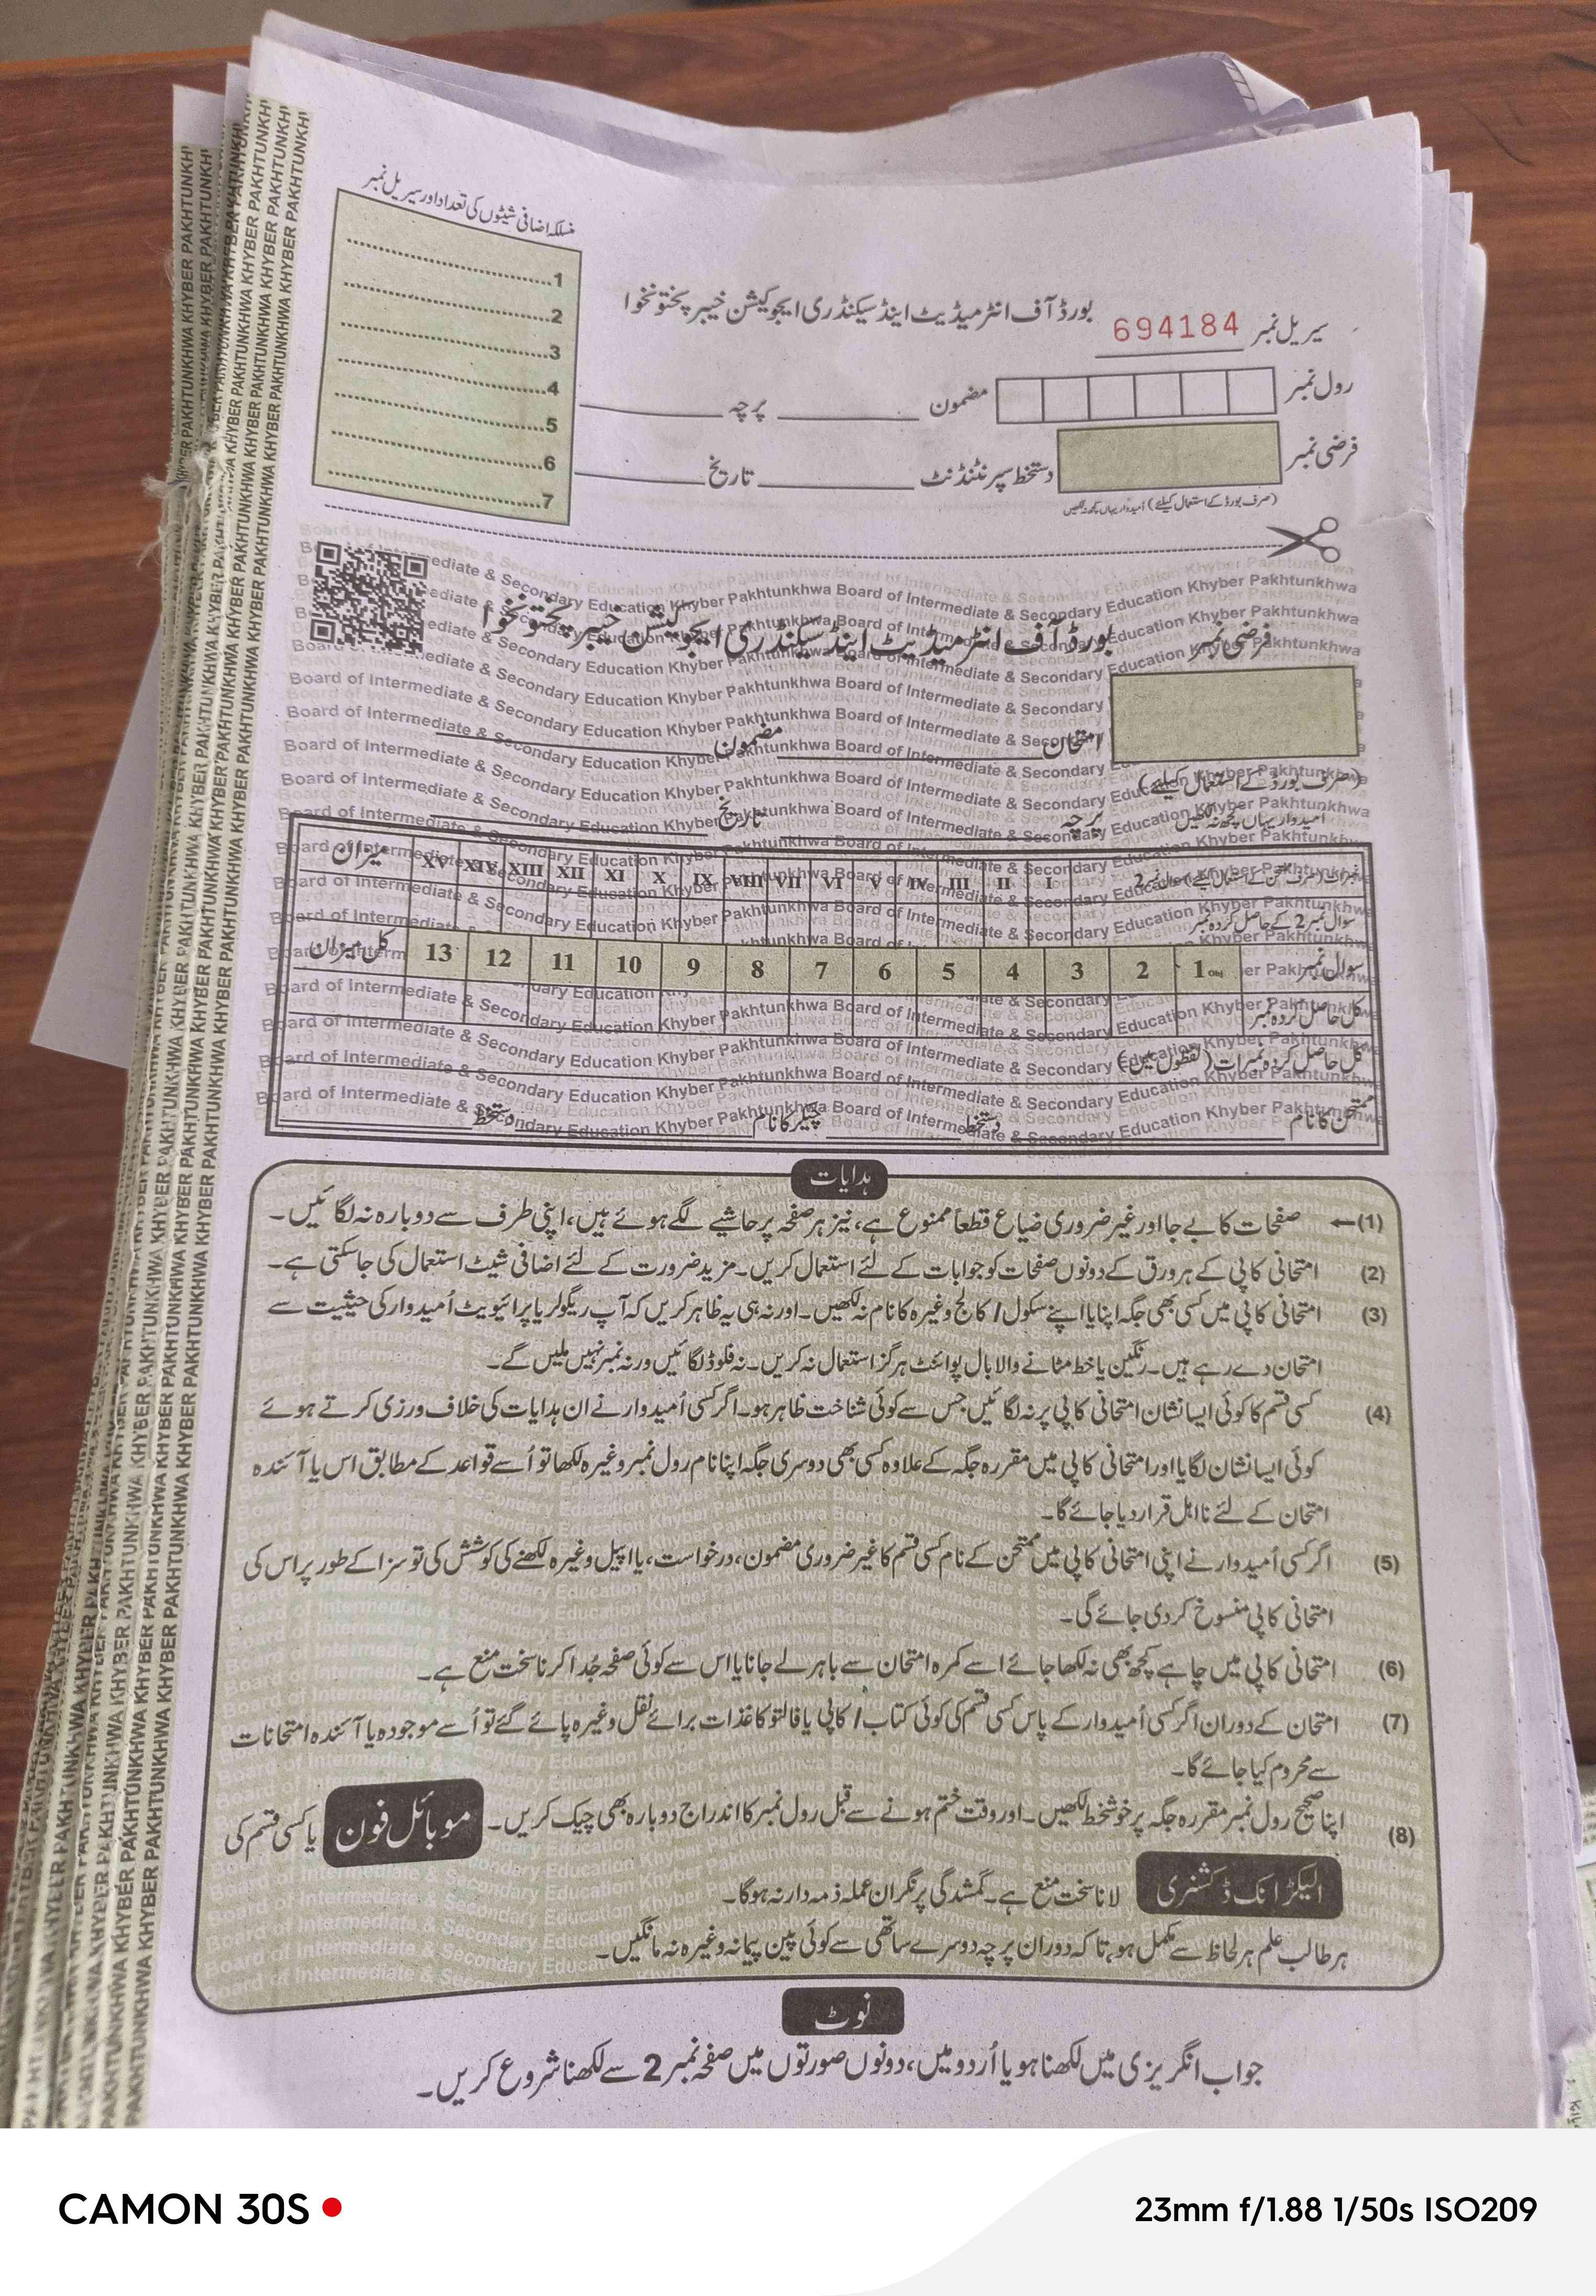 منسلکہ اضافی شیٹوں کی تعداد اور سیریل نمبر
1
2
3
4
5
6
7
سیریل نمبر 694184 بورڈ آف انٹرمیڈیٹ اینڈ سیکنڈری ایجوکیشن خیبر پختونخوا
رول نمبر مضمون پرچہ
فرضی نمبر دستخط سپرنٹنڈنٹ تاریخ
(صرف بورڈ کے استعمال کیلئے) امیدوار یہاں کچھ نہ لکھیں
Board of Intermediate & Secondary Education Khyber Pakhtunkhwa
بورڈ آف انٹرمیڈیٹ اینڈ سیکنڈری ایجوکیشن خیبر پختونخوا
فرضی نمبر
امتحان مضمون
(صرف بورڈ کے استعمال کیلئے)
امیدوار یہاں کچھ نہ لکھیں
پرچہ تاریخ
نمبرات (صرف ممتحن کے استعمال کیلئے) سوال نمبر 2 I II III IV V VI VII VIII IX X XI XII XIII XIV XV میزان
سوال نمبر 2 کے حاصل کردہ نمبر
سوال نمبر 1 Obj 2 3 4 5 6 7 8 9 10 11 12 13 کل میزان
کل حاصل کردہ نمبر
کل حاصل کردہ نمبرات (لفظوں میں)
ممتحن کا نام دستخط چیکر کا نام دستخط
ہدایات
(1)← صفحات کا بے جا اور غیر ضروری ضیاع قطعاً ممنوع ہے، نیز ہر صفحہ پر حاشیے لگے ہوئے ہیں، اپنی طرف سے دوبارہ نہ لگائیں۔
(2) امتحانی کاپی کے ہر ورق کے دونوں صفحات کو جوابات کے لئے استعمال کریں۔ مزید ضرورت کے لئے اضافی شیٹ استعمال کی جاسکتی ہے۔
(3) امتحانی کاپی میں کسی بھی جگہ اپنا یا اپنے سکول / کالج وغیرہ کا نام نہ لکھیں۔ اور نہ ہی یہ ظاہر کریں کہ آپ ریگولر یا پرائیویٹ اُمیدوار کی حیثیت سے
امتحان دے رہے ہیں۔ رنگین یا خط مٹانے والا بال پوائنٹ ہرگز استعمال نہ کریں۔ نہ فلوڈ لگائیں ورنہ نمبر نہیں ملیں گے۔
(4) کسی قسم کا کوئی ایسا نشان امتحانی کاپی پر نہ لگائیں جس سے کوئی شناخت ظاہر ہو۔ اگر کسی اُمیدوار نے ان ہدایات کی خلاف ورزی کرتے ہوئے
کوئی ایسا نشان لگایا اور امتحانی کاپی میں مقررہ جگہ کے علاوہ کسی بھی دوسری جگہ اپنا نام رول نمبر وغیرہ لکھا تو اُسے قواعد کے مطابق اس یا آئندہ
امتحان کے لئے نااہل قرار دیا جائے گا۔
(5) اگر کسی اُمیدوار نے اپنی امتحانی کاپی میں ممتحن کے نام کسی قسم کا غیر ضروری مضمون، درخواست، یا اپیل وغیرہ لکھنے کی کوشش کی تو سزا کے طور پر اس کی
امتحانی کاپی منسوخ کردی جائے گی۔
(6) امتحانی کاپی میں چاہے کچھ بھی نہ لکھا جائے اسے کمرہ امتحان سے باہر لے جانا یا اس سے کوئی صفحہ جُدا کرنا سخت منع ہے۔
(7) امتحان کے دوران اگر کسی اُمیدوار کے پاس کسی قسم کی کوئی کتاب / کاپی یا فالتو کاغذات برائے نقل وغیرہ پائے گئے تو اُسے موجودہ یا آئندہ امتحانات
سے محروم کیا جائے گا۔
(8) اپنا صحیح رول نمبر مقررہ جگہ پر خوشخط لکھیں۔ اور وقت ختم ہونے سے قبل رول نمبر کا اندراج دوبارہ بھی چیک کریں۔ موبائل فون یا کسی قسم کی
الیکٹرانک ڈکشنری لانا سخت منع ہے۔ گمشدگی پر نگران عملہ ذمہ دار نہ ہوگا۔
ہر طالب علم ہر لحاظ سے مکمل ہو، تاکہ دوران پرچہ دوسرے ساتھی سے کوئی پین پیمانہ وغیرہ نہ مانگیں۔
نوٹ
جواب انگریزی میں لکھنا ہو یا اُردو میں، دونوں صورتوں میں صفحہ نمبر 2 سے لکھنا شروع کریں۔
KHYBER PAKHTUNKHWA KHYBER PAKHTUNKHWA KHYBER PAKHTUNKHWA
CAMON 30S
23mm f/1.88 1/50s ISO209